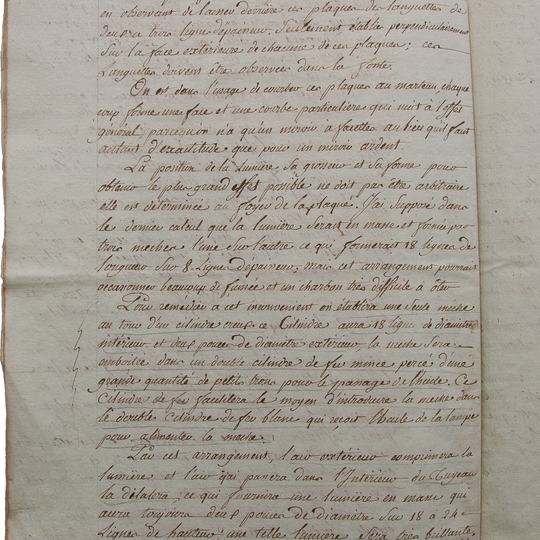 en observant de laisser derriere ces plaques de languettes de
deux a trois lignes depaisseur, seulement, etablies perpendiculairement
sur la face exterieure de chacune de ces plaques; ces
languettes doivent être observées dans la fonte.
On est dans l'usage de courber ces plaques au marteau, chaque
coup forme une face et une courbe particuliere qui nuit à l'effet
général, parcequ'on n'a qu'un miroir à facettes au lieu qu'il faut
autant d'exactitude que pour un miroir ardent.
La position de la Lumiere, sa grosseur et sa forme pour
obtenir le plus grand effet possible ne doit pas être arbitraire
elle est determinée au foyer de la plaque. J'ai supposé dans
le dernier calcul que la lumière serait en masse et formée par
trois meches l'une sur l'autre ce qui formerait 18 lignes de
longueur sur 8 Lignes depaisseur, mais cet arrangement pourrait
occasionner beaucoup de fumée et un charbon très difficile à ôter
Pour remedier a cet inconvenient on établira une seule meche
au tour d'un cilindre creux, ce Cilindre aura 18 lignes de diametre
intérieur et deux pouces de diametre extérieur, la meche sera
emboitée dans un double cilindre de fer mince percé d'une
grande quantité de petits trous pour le passage de l'huile. Ce
Cilindre de fer facilitera le moyen d'introduire la meche dans
le double Cilindre de fer blanc qui recoit l'huile de la lampe
pour alimenter la meche.
Par cet arrangement, l'air extérieur comprimera la
lumière et l'air qui passera dans l'Intérieur du tuyeau
la dilatera; ce qui fournira une lumière en masse qui
aura toujours deux pouces de diamètre sur 18 à 24
Lignes de hauteur: une telle lumière sera très brillante,